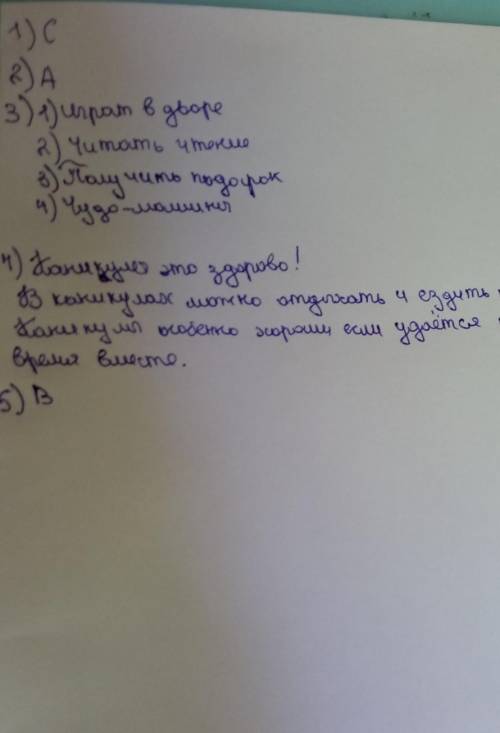 1) С
2) А
3) 1) играт в дворе
2) Читать чтение
3) Получить подорок
4) Чудо-машины
4) Каникулы это здорово!
В каникулах можно отдыхать и ездить
Каникулы особенно хороши если удаётся
время вместе.
5) В